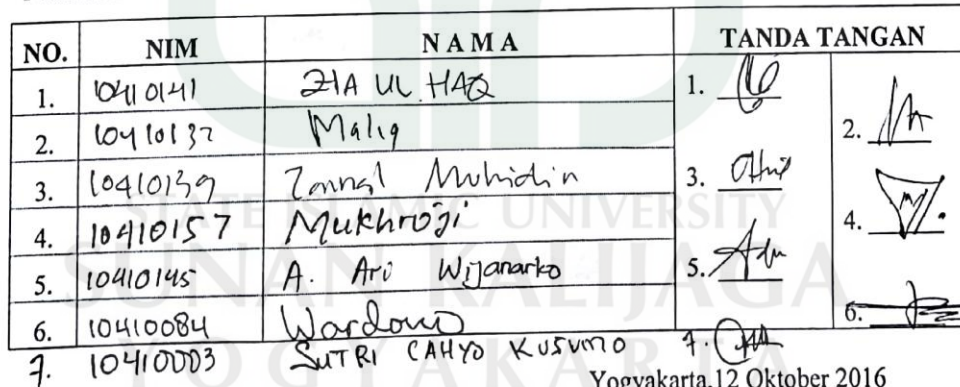 NO. NIM NAMA TANDA TANGAN
1. 10410141 ZIA UL HAQ 1.
2. 10410132 Maliq 2.
3. 10410139 Zainal Muhidin 3.
4. 10410157 Mukhroji 4.
5. 10410145 A. Ari Wijanarko 5.
6. 10410084 Wardowo 6.
7. 10410003 SUTRI CAHYO KUSUMO 7.
STATE ISLAMIC UNIVERSITY
SUNAN KALIJAGA
YOGYAKARTA
Yogyakarta,12 Oktober 2016